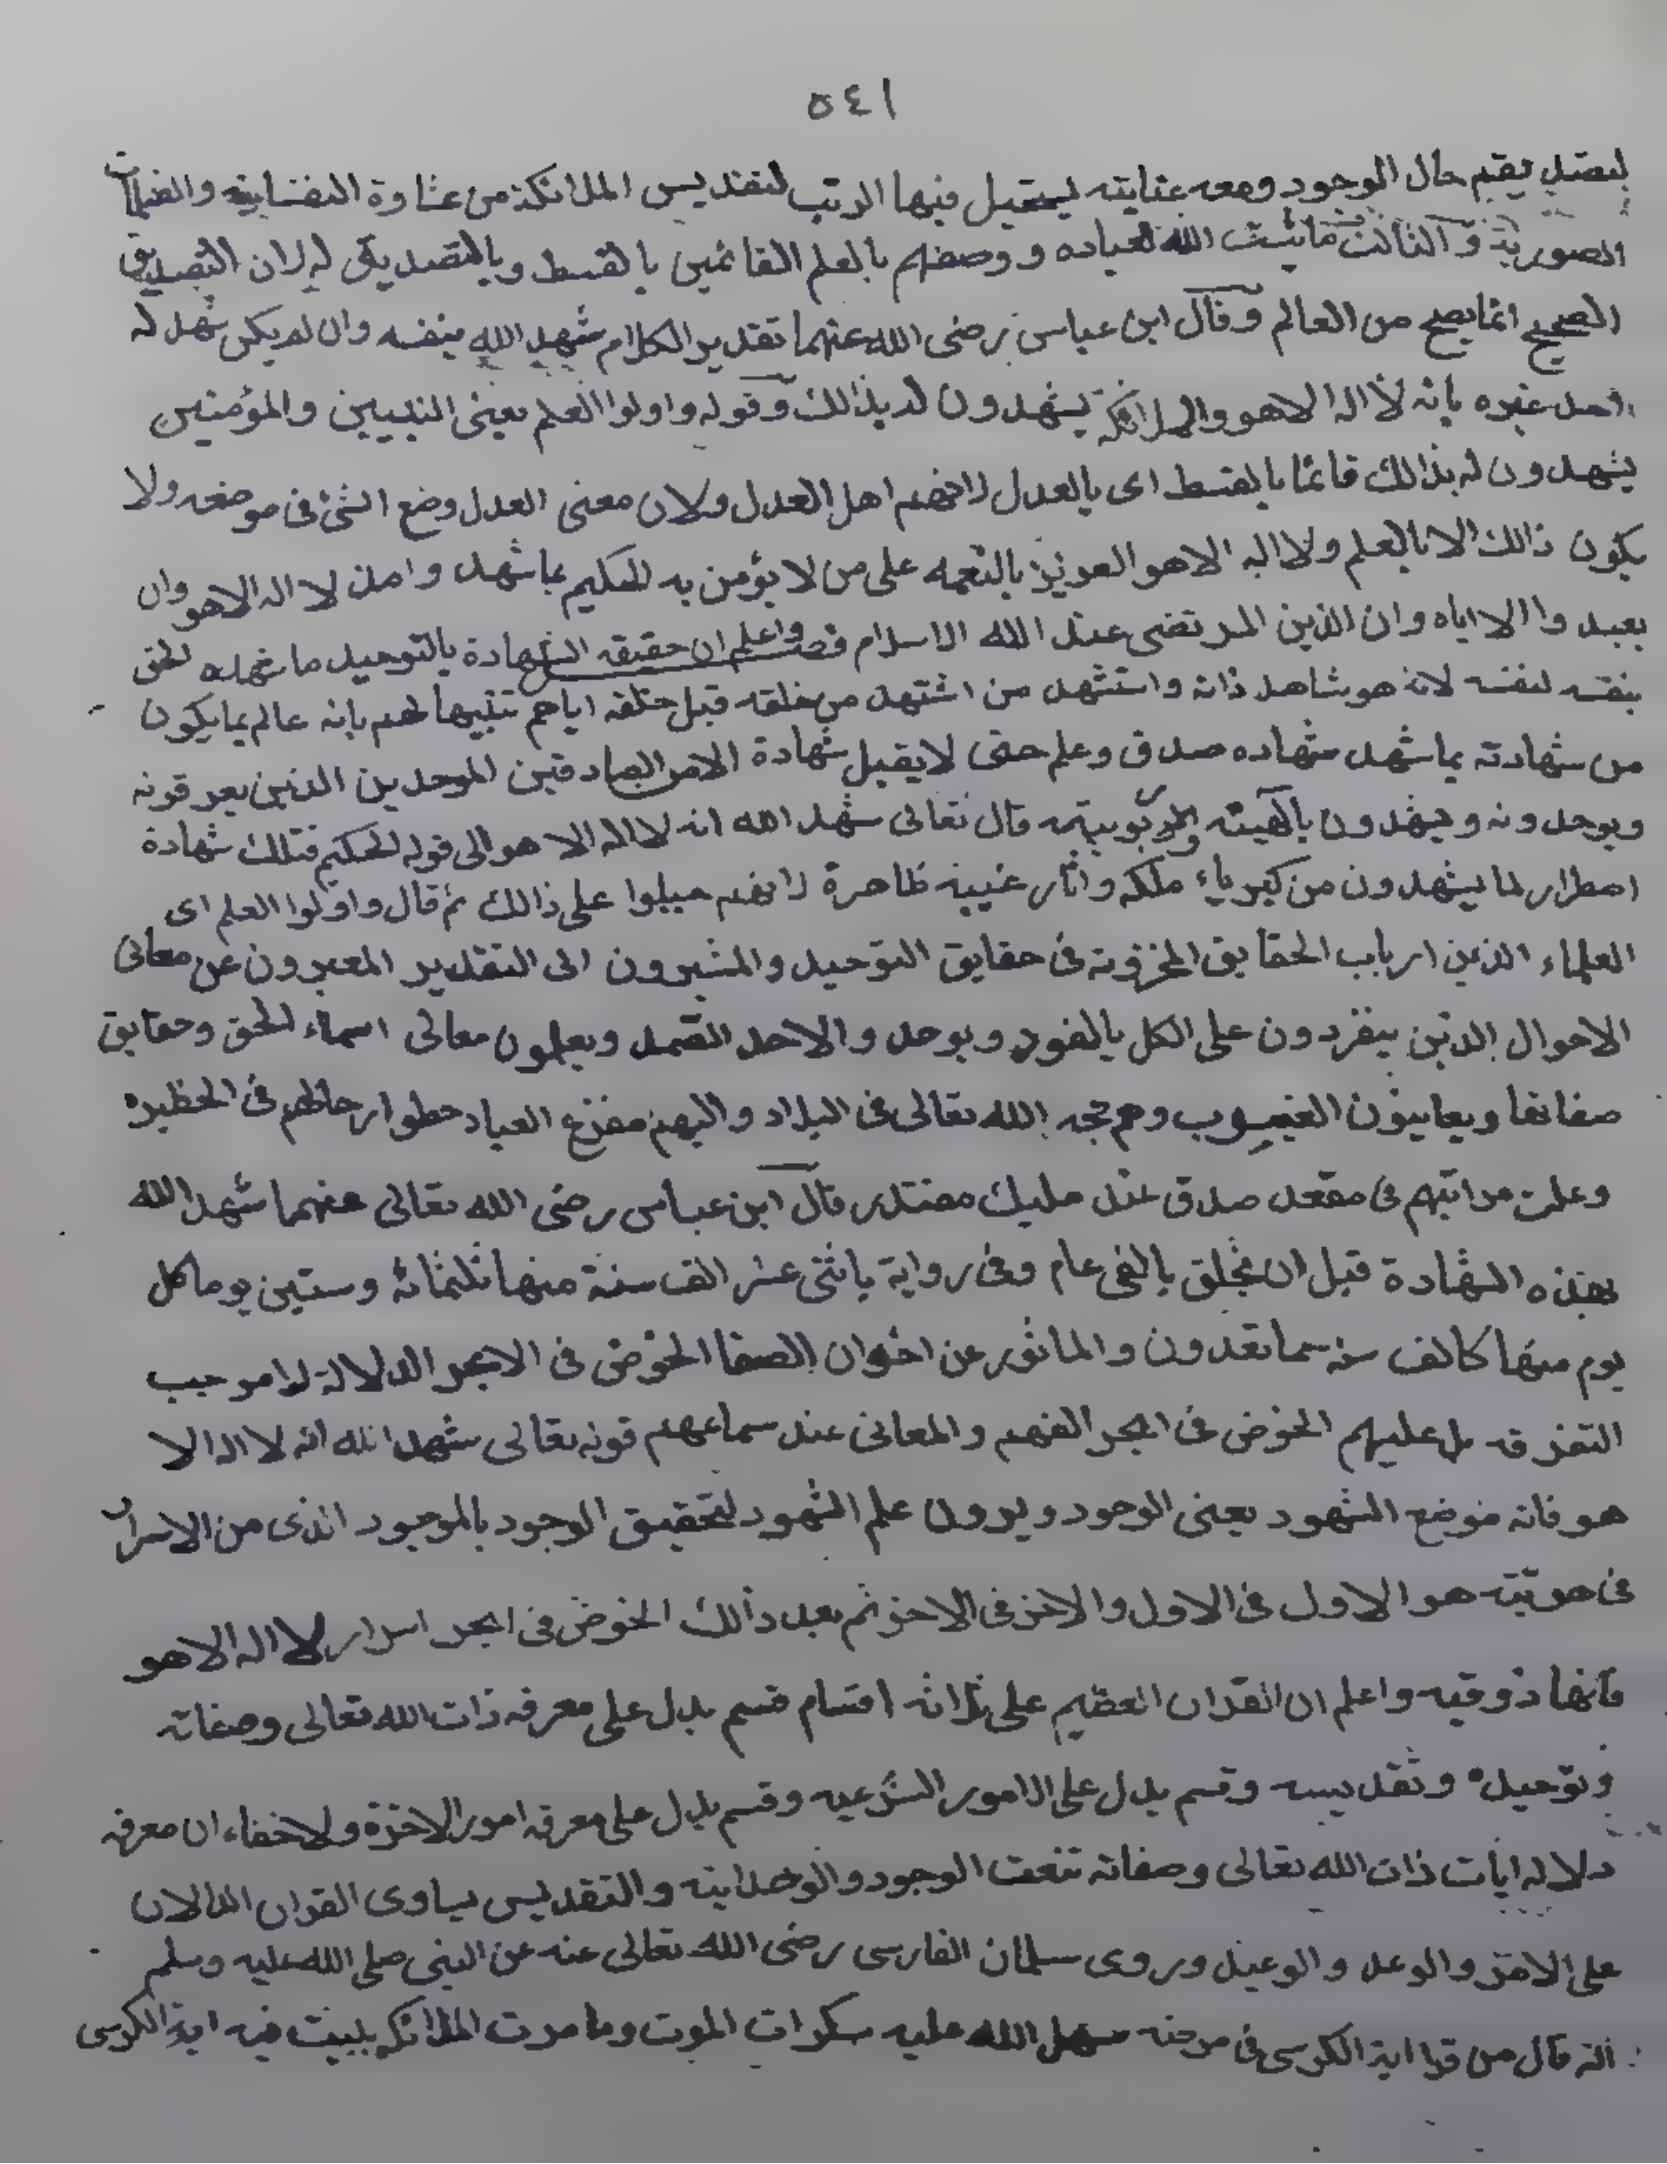 ٥٤١
حال الوجود ومعه عنايته يستحيل فيها الرتب لتقديس الملائكة من غشاوة النفسانية
الصورية والثالث الله لعباده ووصفهم بالعلم القائمين بالقسط له لان التصديق
الصحيح انما يصح من العالم وقال ابن عباس رضى الله عنهما تقدير الكلام شهد الله بنفسه وان لم يكن شهد له
احد غيره بانه لا اله الا هو والملائكة يشهدون له بذالك وقوله واولوا العلم يعنى النبيين والمؤمنين
يشهدون له بذالك قائما بالقسط اى بالعدل لانهم اهل العدل ولان معنى العدل وضع الشئ فى موضعه ولا
يكون ذالك الا بالعلم ولا اله الا هو العزيز بالنقمه على من لا يؤمن به الحكيم بما شهد لا اله الا هو وان
يعبدوا الا اياه وان الدين المرتضى عند الله الاسلام واعلم ان حقيقة الشهادة بالتوحيد ما شهد الحق
بنفسه لنفسه لانه هو شاهد ذاته واستشهد من اشتهد من خلقه قبل خلقه اياهم تنبيها لهم بانه عالم بما يكون
من شهادته بما شهد شهاده صدق وعلم حتى لا يقبل شهادة الا من الصادقين الموحدين الذين يعرفونه
ويوحدونه ويشهدون بالهيته والربوبيته قال تعالى شهد الله انه لا اله الا هو الى قوله الحكيم فتلك شهادة
اضطرار لما يشهدون من كبرياء ملكه واثار غيبيه ظاهرة لانهم جبلوا على ذالك ثم قال واولوا العلم اى
العلماء الذين ارباب الحقايق المخزونة فى حقايق التوحيد والمشيرون الى التقدير المعبرون عن معانى
الاحوال الذين ينفردون على الكل بالفرد ويوحد والاحد الصمد ويعلمون معانى اسماء الحق وحقايق
صفاتها ويعاينون الغيوب وهم حجه الله تعالى فى البلاد واليهم مفزع العباد حطوا رحالهم فى الحظيره
وعلت مراتبهم فى مقعد صدق عند مليك مقتدر قال ابن عباس رضى الله تعالى عنهما شهد الله
بهذه الشهادة قبل ان يخلق بالفى عام وفى رواية باثنى عشر الف سنة منها ثلثمائة وستين يوما كل
يوم منها كالف سنة مما تعدون والماثور عن اخوان الصفا الخوض فى الابحر الدلالة لا موجب
التفرقه بل عليهم الخوض فى ابحر الفهم والمعانى عند سماعهم قوله تعالى شهد الله انه لا اله الا
هو فانه موضع الشهود يعنى الوجود ويرون علم الشهود لتحقيق الوجود بالموجود الذى من الاسرار
فى هويته هو الاول فى الاول والاخر فى الاخر ثم بعد ذالك الخوض فى ابحر اسرار لا اله الا هو
فانها ذوقيه واعلم ان القران العظيم على ثلاثه اقسام قسم يدل على معرفه ذات الله تعالى وصفاته
وتوحيده وتقديسه وقسم يدل على الامور الشرعيه وقسم يدل على معرفه امور الاخرة ولا خفاء ان معرفه
دلاله ايات ذات الله تعالى وصفاته تنعت الوجود والوحدانيه والتقديس يساوى القران الدالان
على الامر والوعد والوعيد وروى سلمان الفارسى رضى الله تعالى عنه عن النبى صلى الله عليه وسلم
انه قال من قرا اية الكرسى فى مرضه سهل الله عليه سكرات الموت وما مرت الملائكه ببيت فيه اية الكرسى